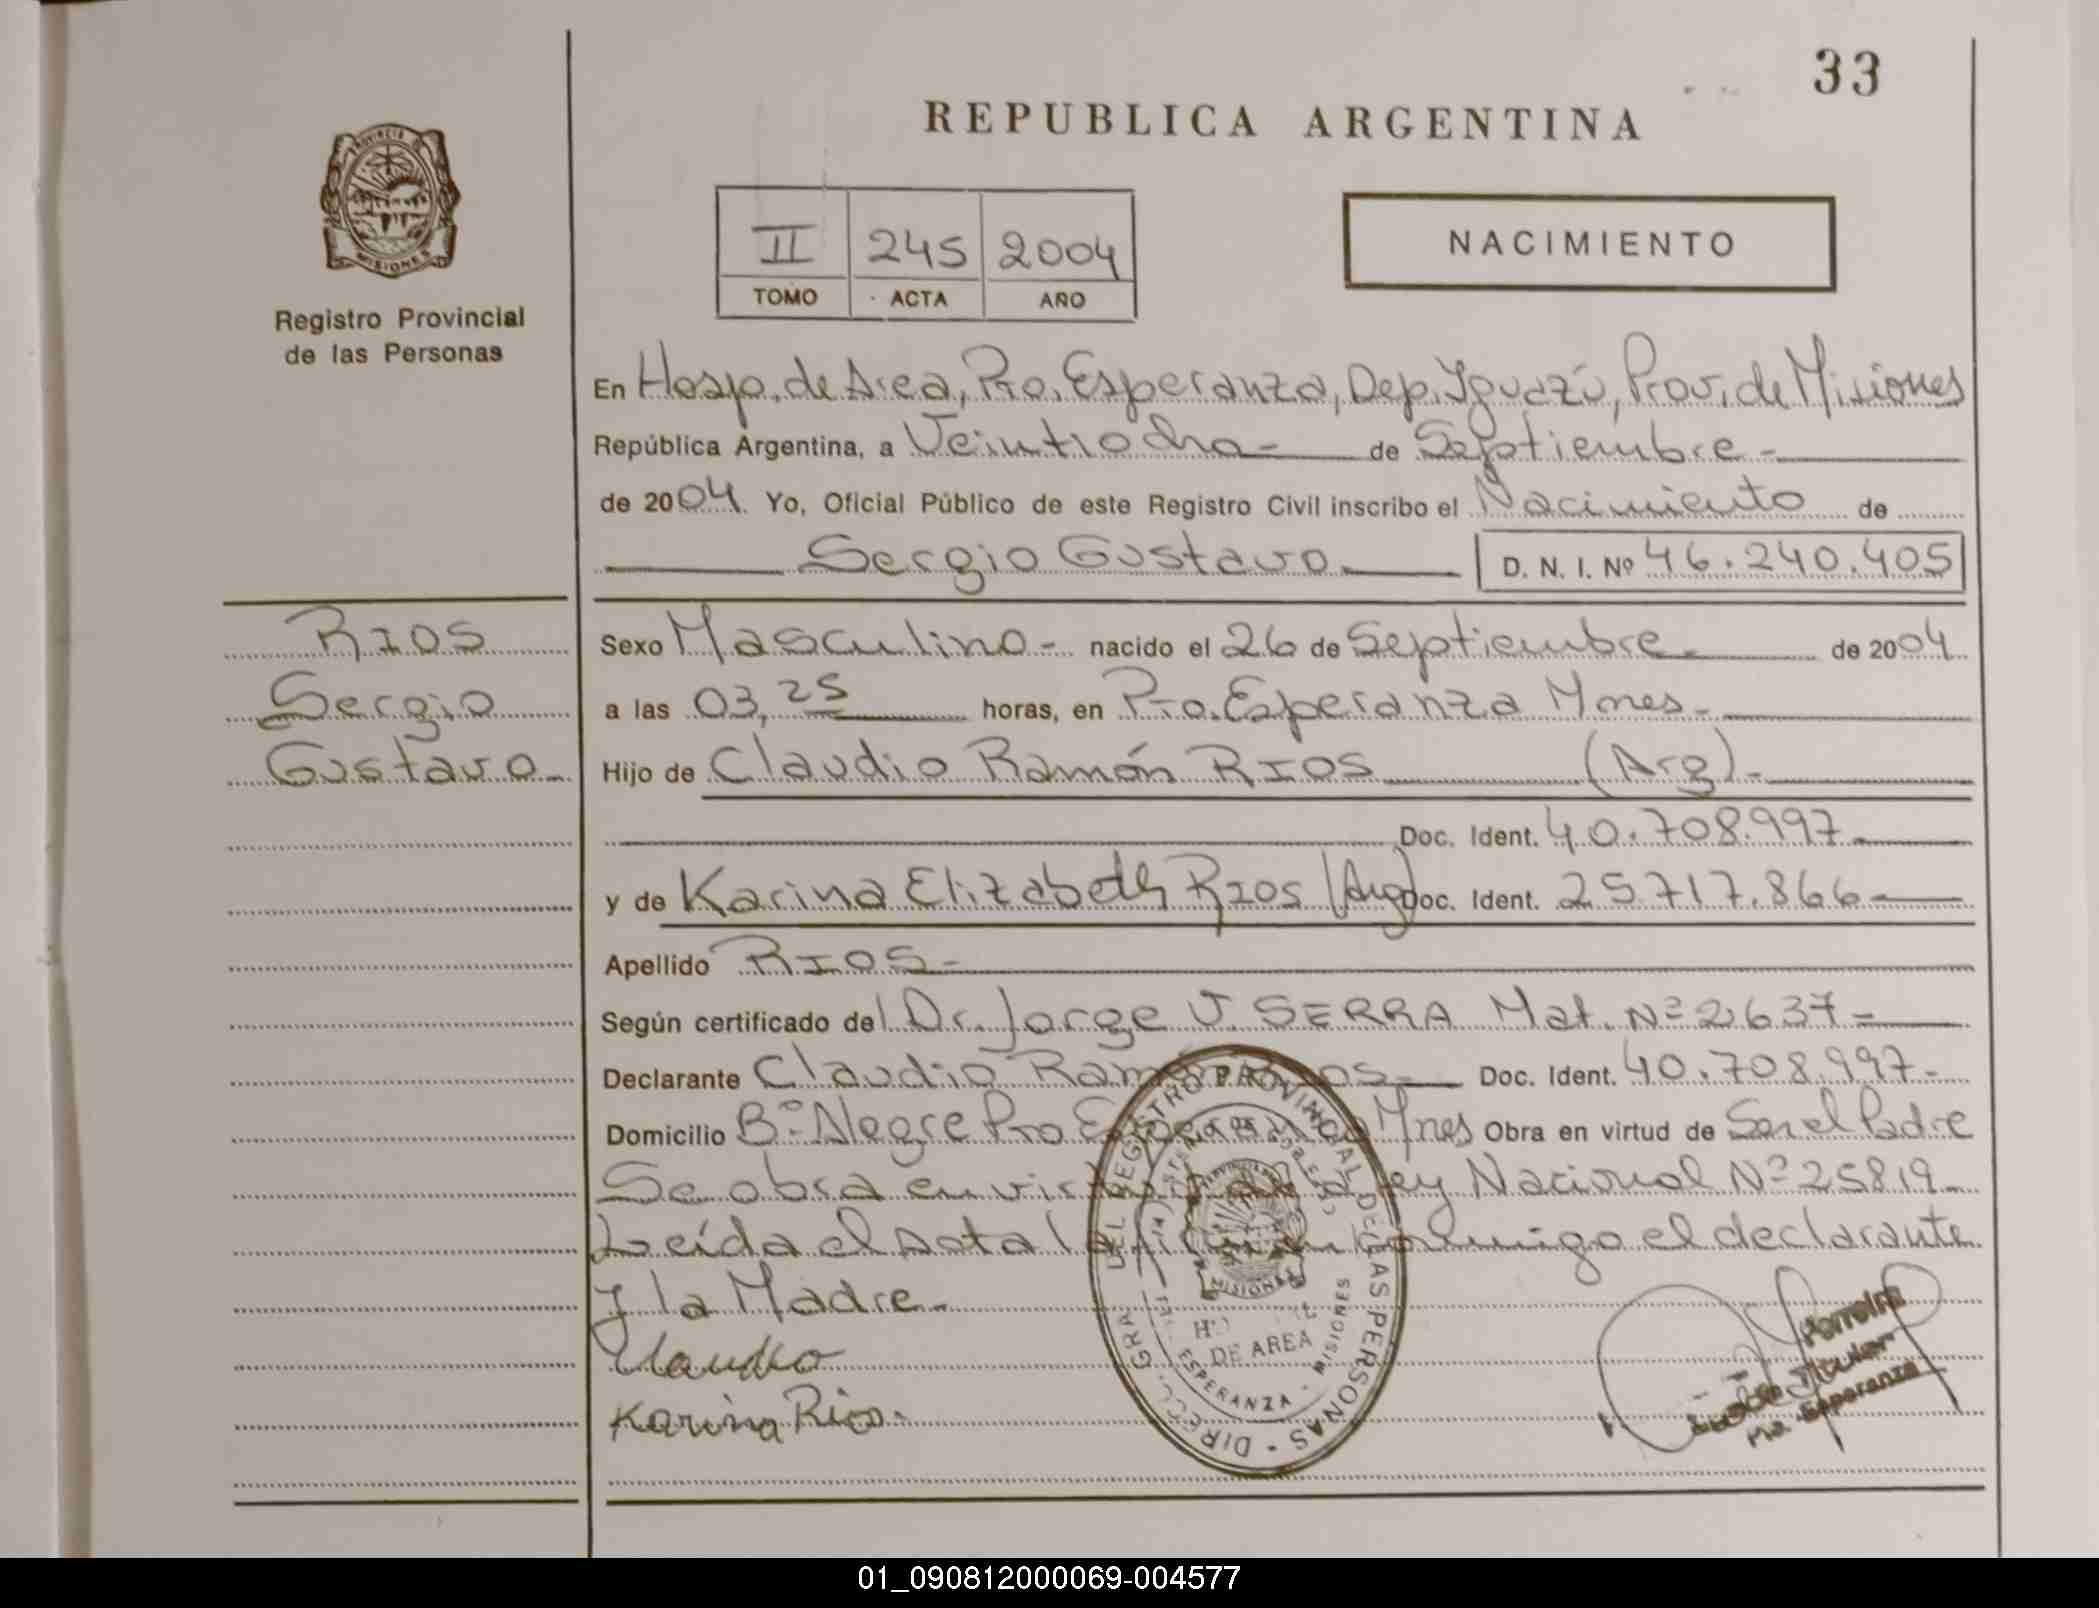 33
REPUBLICA ARGENTINA
PROVINCIA D
MISIONES
Registro Provincial
de las Personas
II 245 2004
TOMO ACTA AÑO
NACIMIENTO
En Hosp. de Area, Pto. Esperanza, Dep. Iguazú, Prov. de Misiones
República Argentina, a Veintiocho - de Septiembre -
de 2004. Yo, Oficial Público de este Registro Civil inscribo el Nacimiento de
Sergio Gustavo D. N. I. Nº 46.240.405
RIOS
Sergio
Gustavo -
Sexo Masculino - nacido el 26 de Septiembre - de 2004
a las 03,25 horas, en Pto. Esperanza Mnes -
Hijo de Claudio Ramón RIOS (Arg) -
Doc. Ident. 40.708.997 -
y de Karina Elizabeth RIOS (Arg) Doc. Ident. 25.717.866 -
Apellido RIOS -
Según certificado del Dr. Jorge V. SERRA Mat. Nº 2637 -
Declarante Claudio Ramón Rios - Doc. Ident. 40.708.997 -
Domicilio Bº Alegre Pto Esperanza Mnes Obra en virtud de Ser el Padre
Se obra en virtud de la Ley Nacional Nº 25819 -
Leída el Acta la firman conmigo el declarante
y la Madre -
Claudio
Karina Rios.
DIRECC. GRAL. DEL REGISTRO PROVINCIAL DE LAS PERSONAS
MISIONES
DE AREA
ESPERANZA - MISIONES
Ferreira
Titular
Pto. Esperanza
01_090812000069-004577